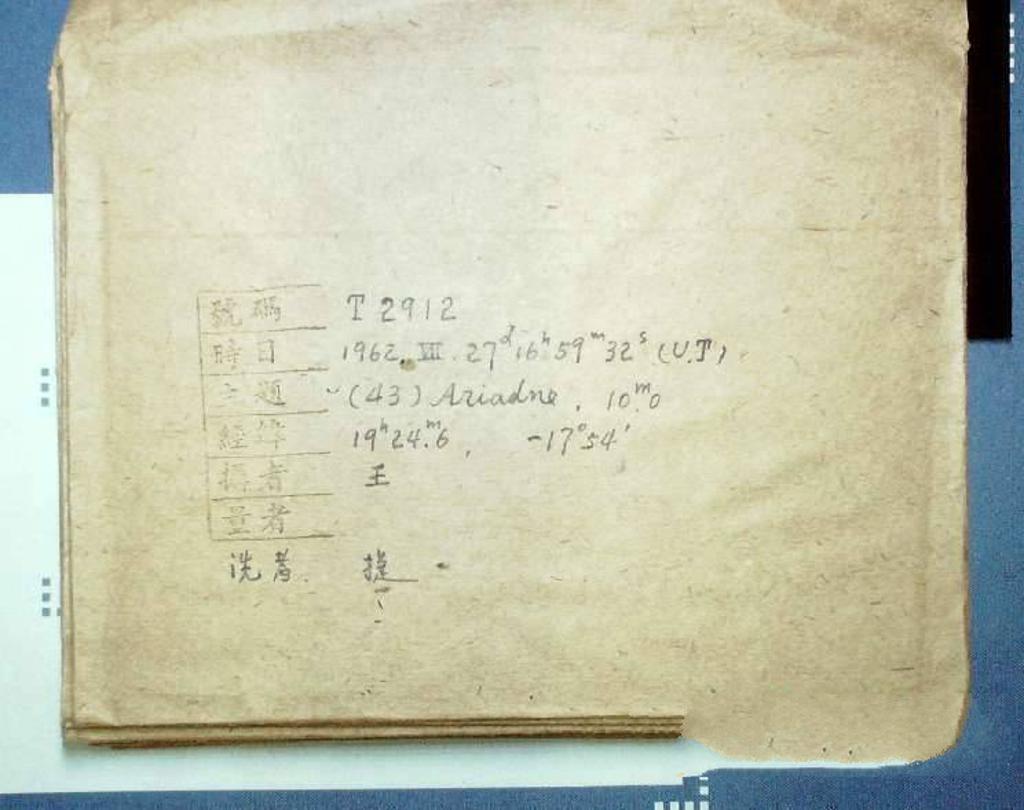 號碼 T 2912
時日 1962. VII. 27ᵈ16ʰ59ᵐ32ˢ (U.T)
主題 (43) Ariadne, 10ᵐ.0
經緯 19ʰ24ᵐ.6, -17°54'
攝者 王
量者
洗者. 捷